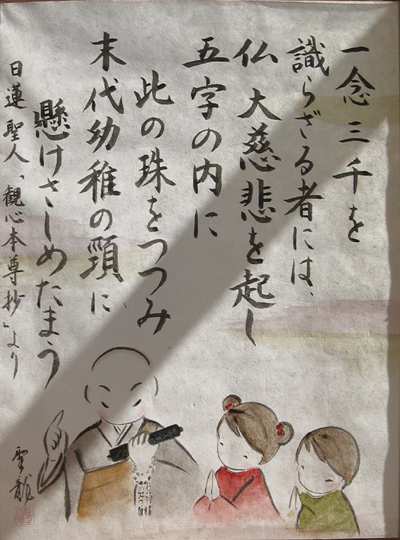 一念三千を
識らざる者には、
仏大慈悲を起し
五字の内に
此の珠をつつみ
末代幼稚の頸に
懸けさしめたまう
日蓮聖人「観心本尊抄」より
聖龍